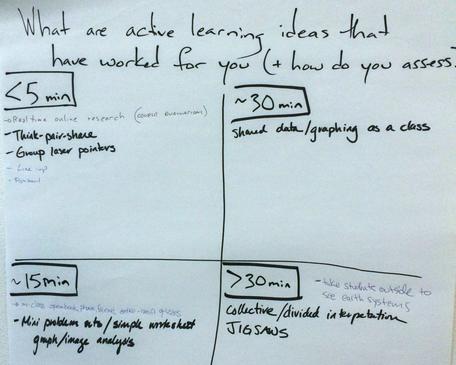 What are active learning ideas that
have worked for you (+ how do you assess?
<5 min
→ Real time online research (
- Think-pair-share
- Group laser pointers
- Line up
~30 min
shared data/graphing as a class
~15 min
- Mini problem sets / simple worksheet
graph/image analysis
>30 min
- take students outside to
see earth systems
collective/divided interpretation
JIGSAWS